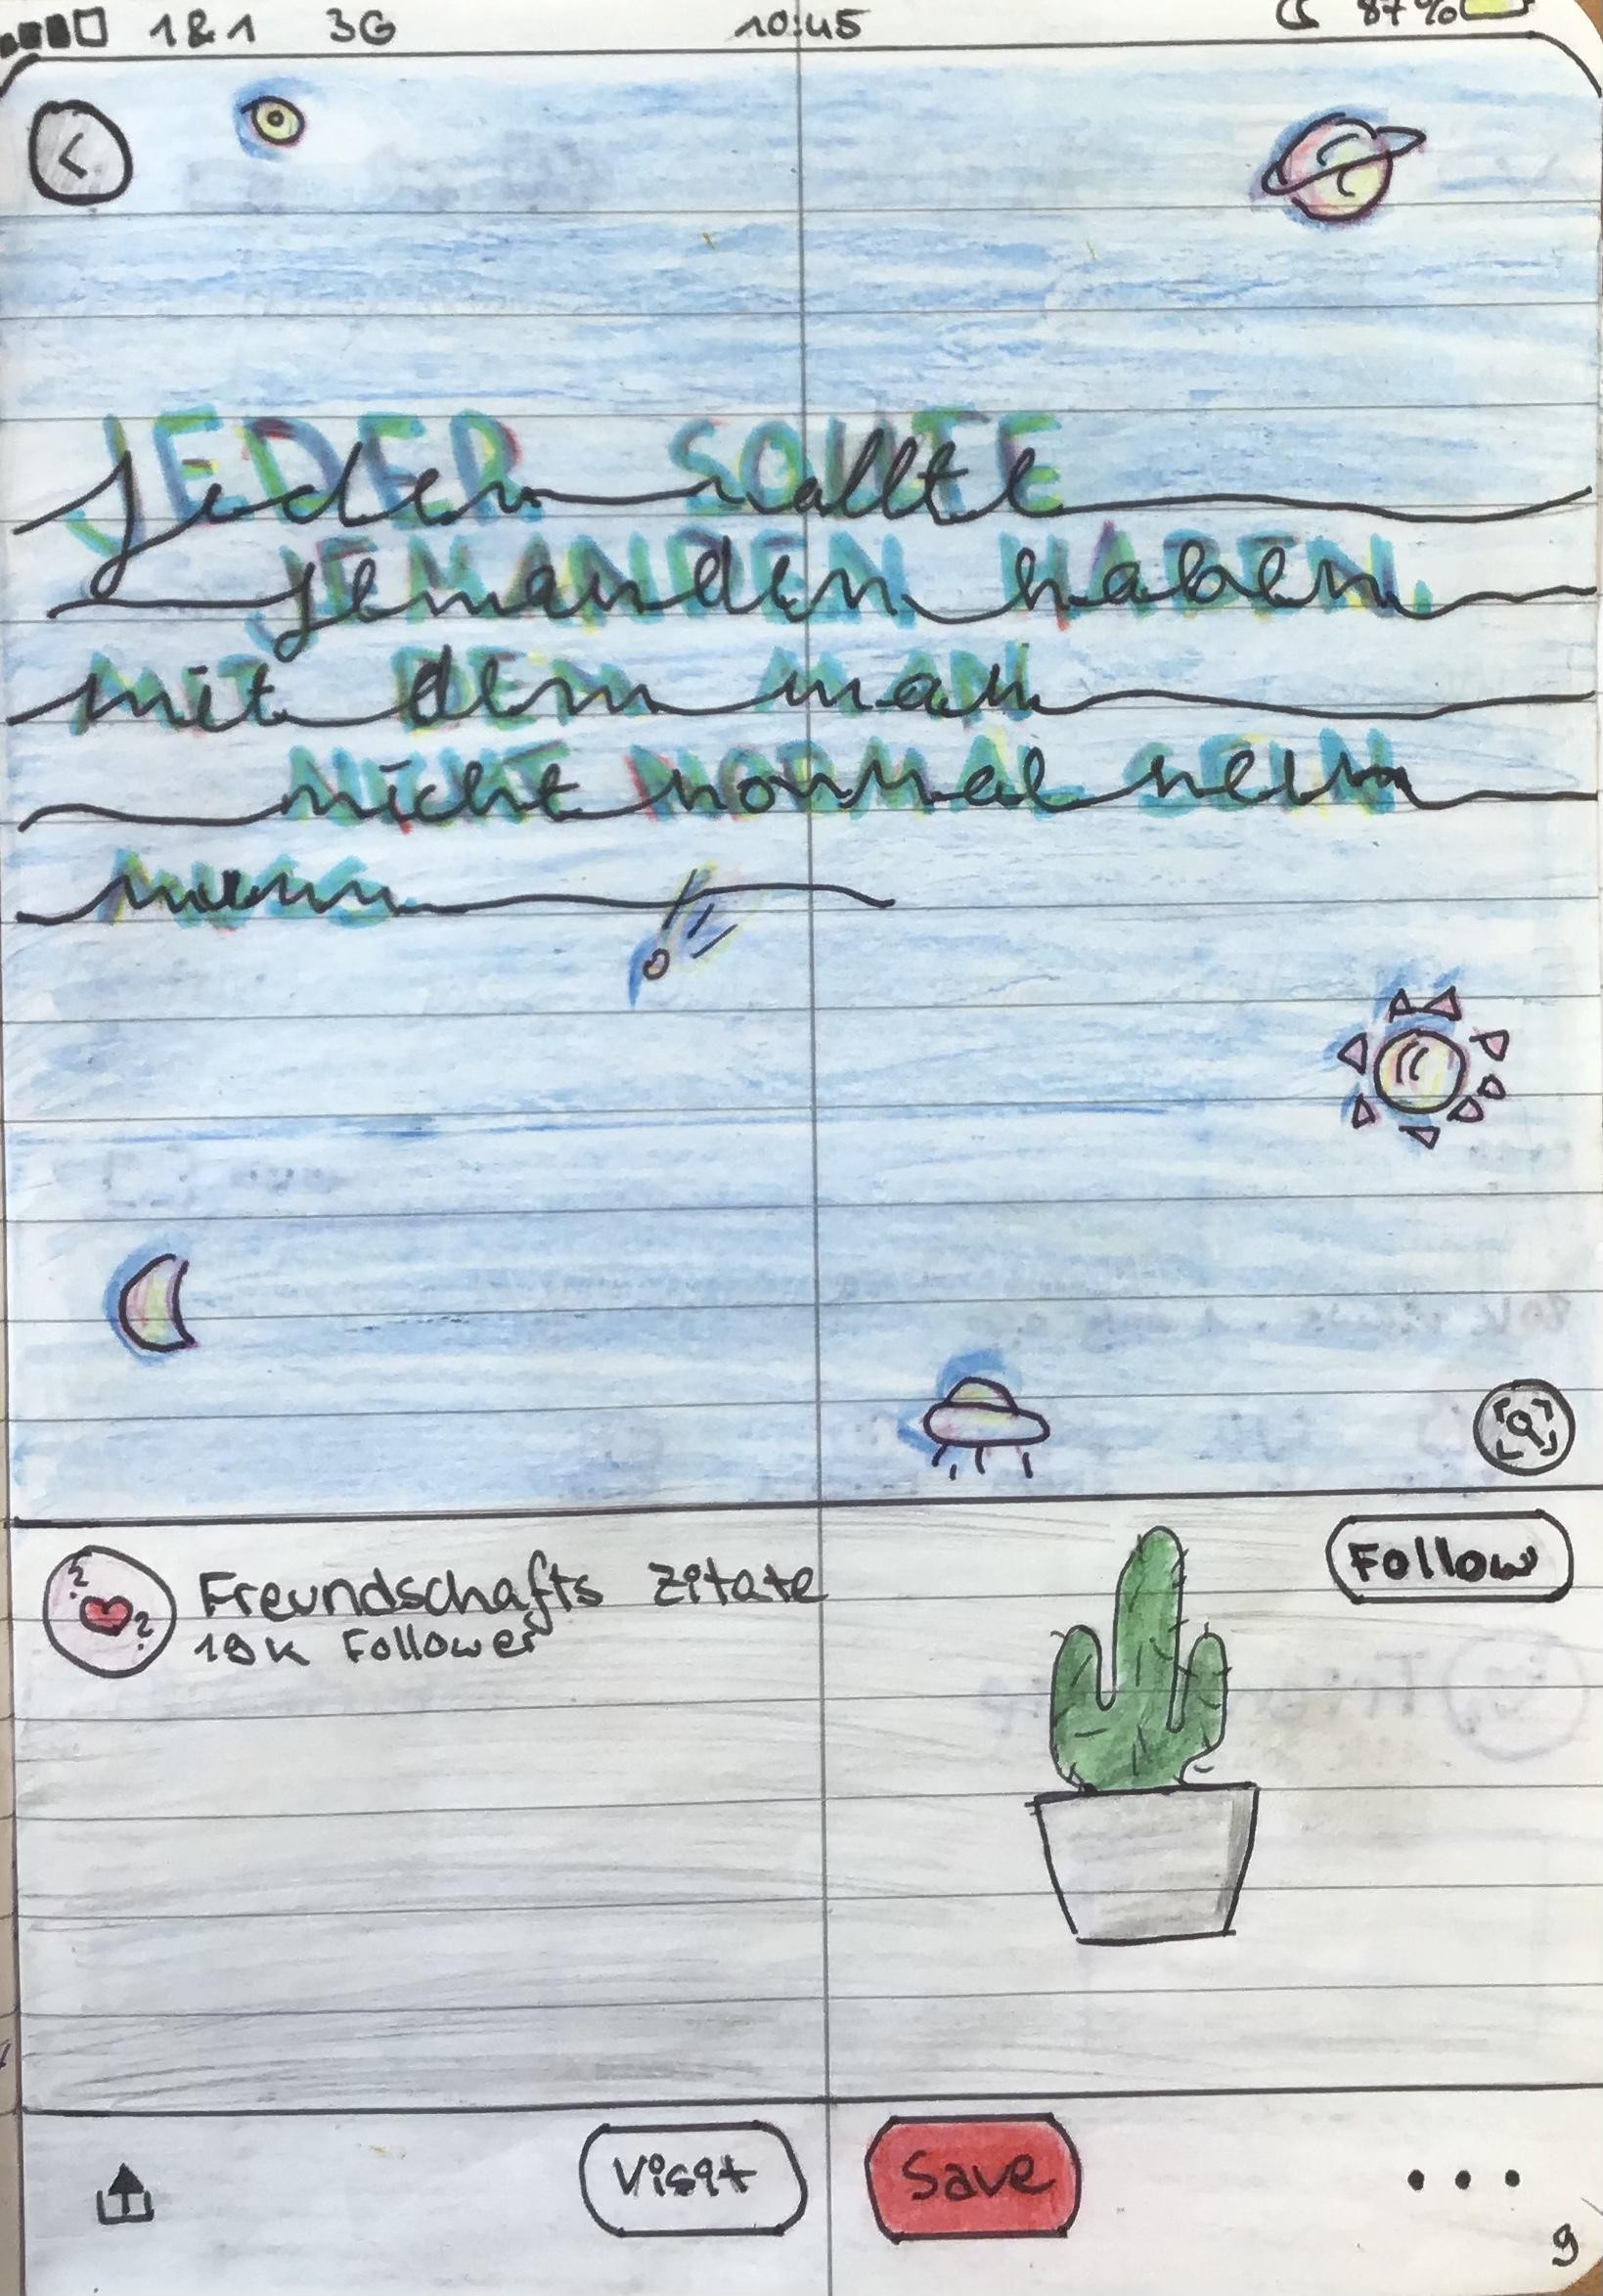 1&1 3G 10:45 87%
JEDER SOLLTE
jeder sollte
JEMANDEN HABEN,
jemanden haben
MIT DEM MAN
mit dem man
NICHT NORMAL SEIN
nicht normal sein
MUSS
muss
Follow
Freundschafts Zitate
19K Follower
Visit Save
9